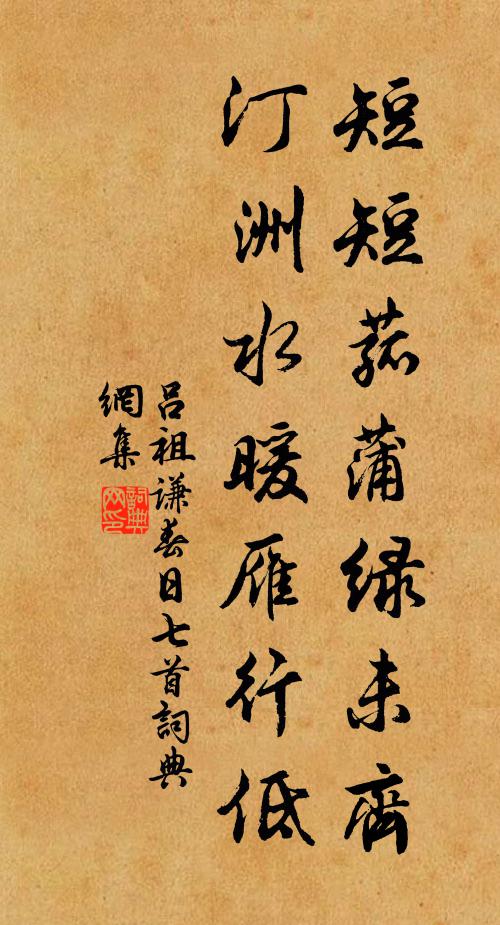 短短菰蒲绿未齊
汀洲水暖雁行低
吕祖谦春日七首詞典
網集
詞典網印